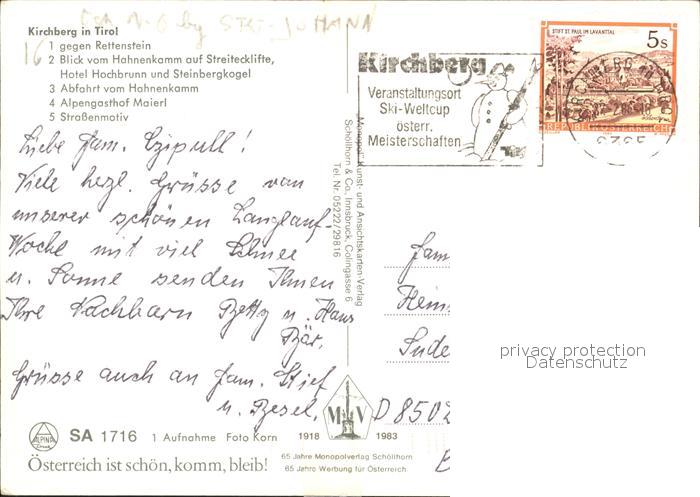 Kirchberg in Tirol
16
1 gegen Rettenstein
2 Blick vom Hahnenkamm auf Streitecklifte,
Hotel Hochbrunn und Steinbergkogel
3 Abfahrt vom Hahnenkamm
4 Alpengasthof Maierl
5 Straßenmotiv
Kirchberg
Veranstaltungsort
Ski-Weltcup
österr.
Meisterschaften
STIFT ST. PAUL IM LAVANTTAL
5s
REPUBLIK ÖSTERREICH
Liebe Fam. Czipull!
Viele herzl. Grüsse von
unserer schönen Langlauf-
Woche mit viel Schnee
u. Sonne senden Ihnen
Ihre Nachbarn Betty u. Hans
Bär.
Grüsse auch an Fam. Stief
u. Besel.
"Monopol" Kunst- und Ansichtskarten-Verlag
Schöllhorn & Co., Innsbruck, Colingasse 6
Tel. Nr. 05222/29816
Fam
Hein
Sude
D 8502
privacy protection
Datenschutz
ALPINA
Druck
SA 1716 1 Aufnahme Foto Korn
1918 MV 1983
65 Jahre Monopolverlag Schöllhorn
65 Jahre Werbung für Österreich
Österreich ist schön, komm, bleib!